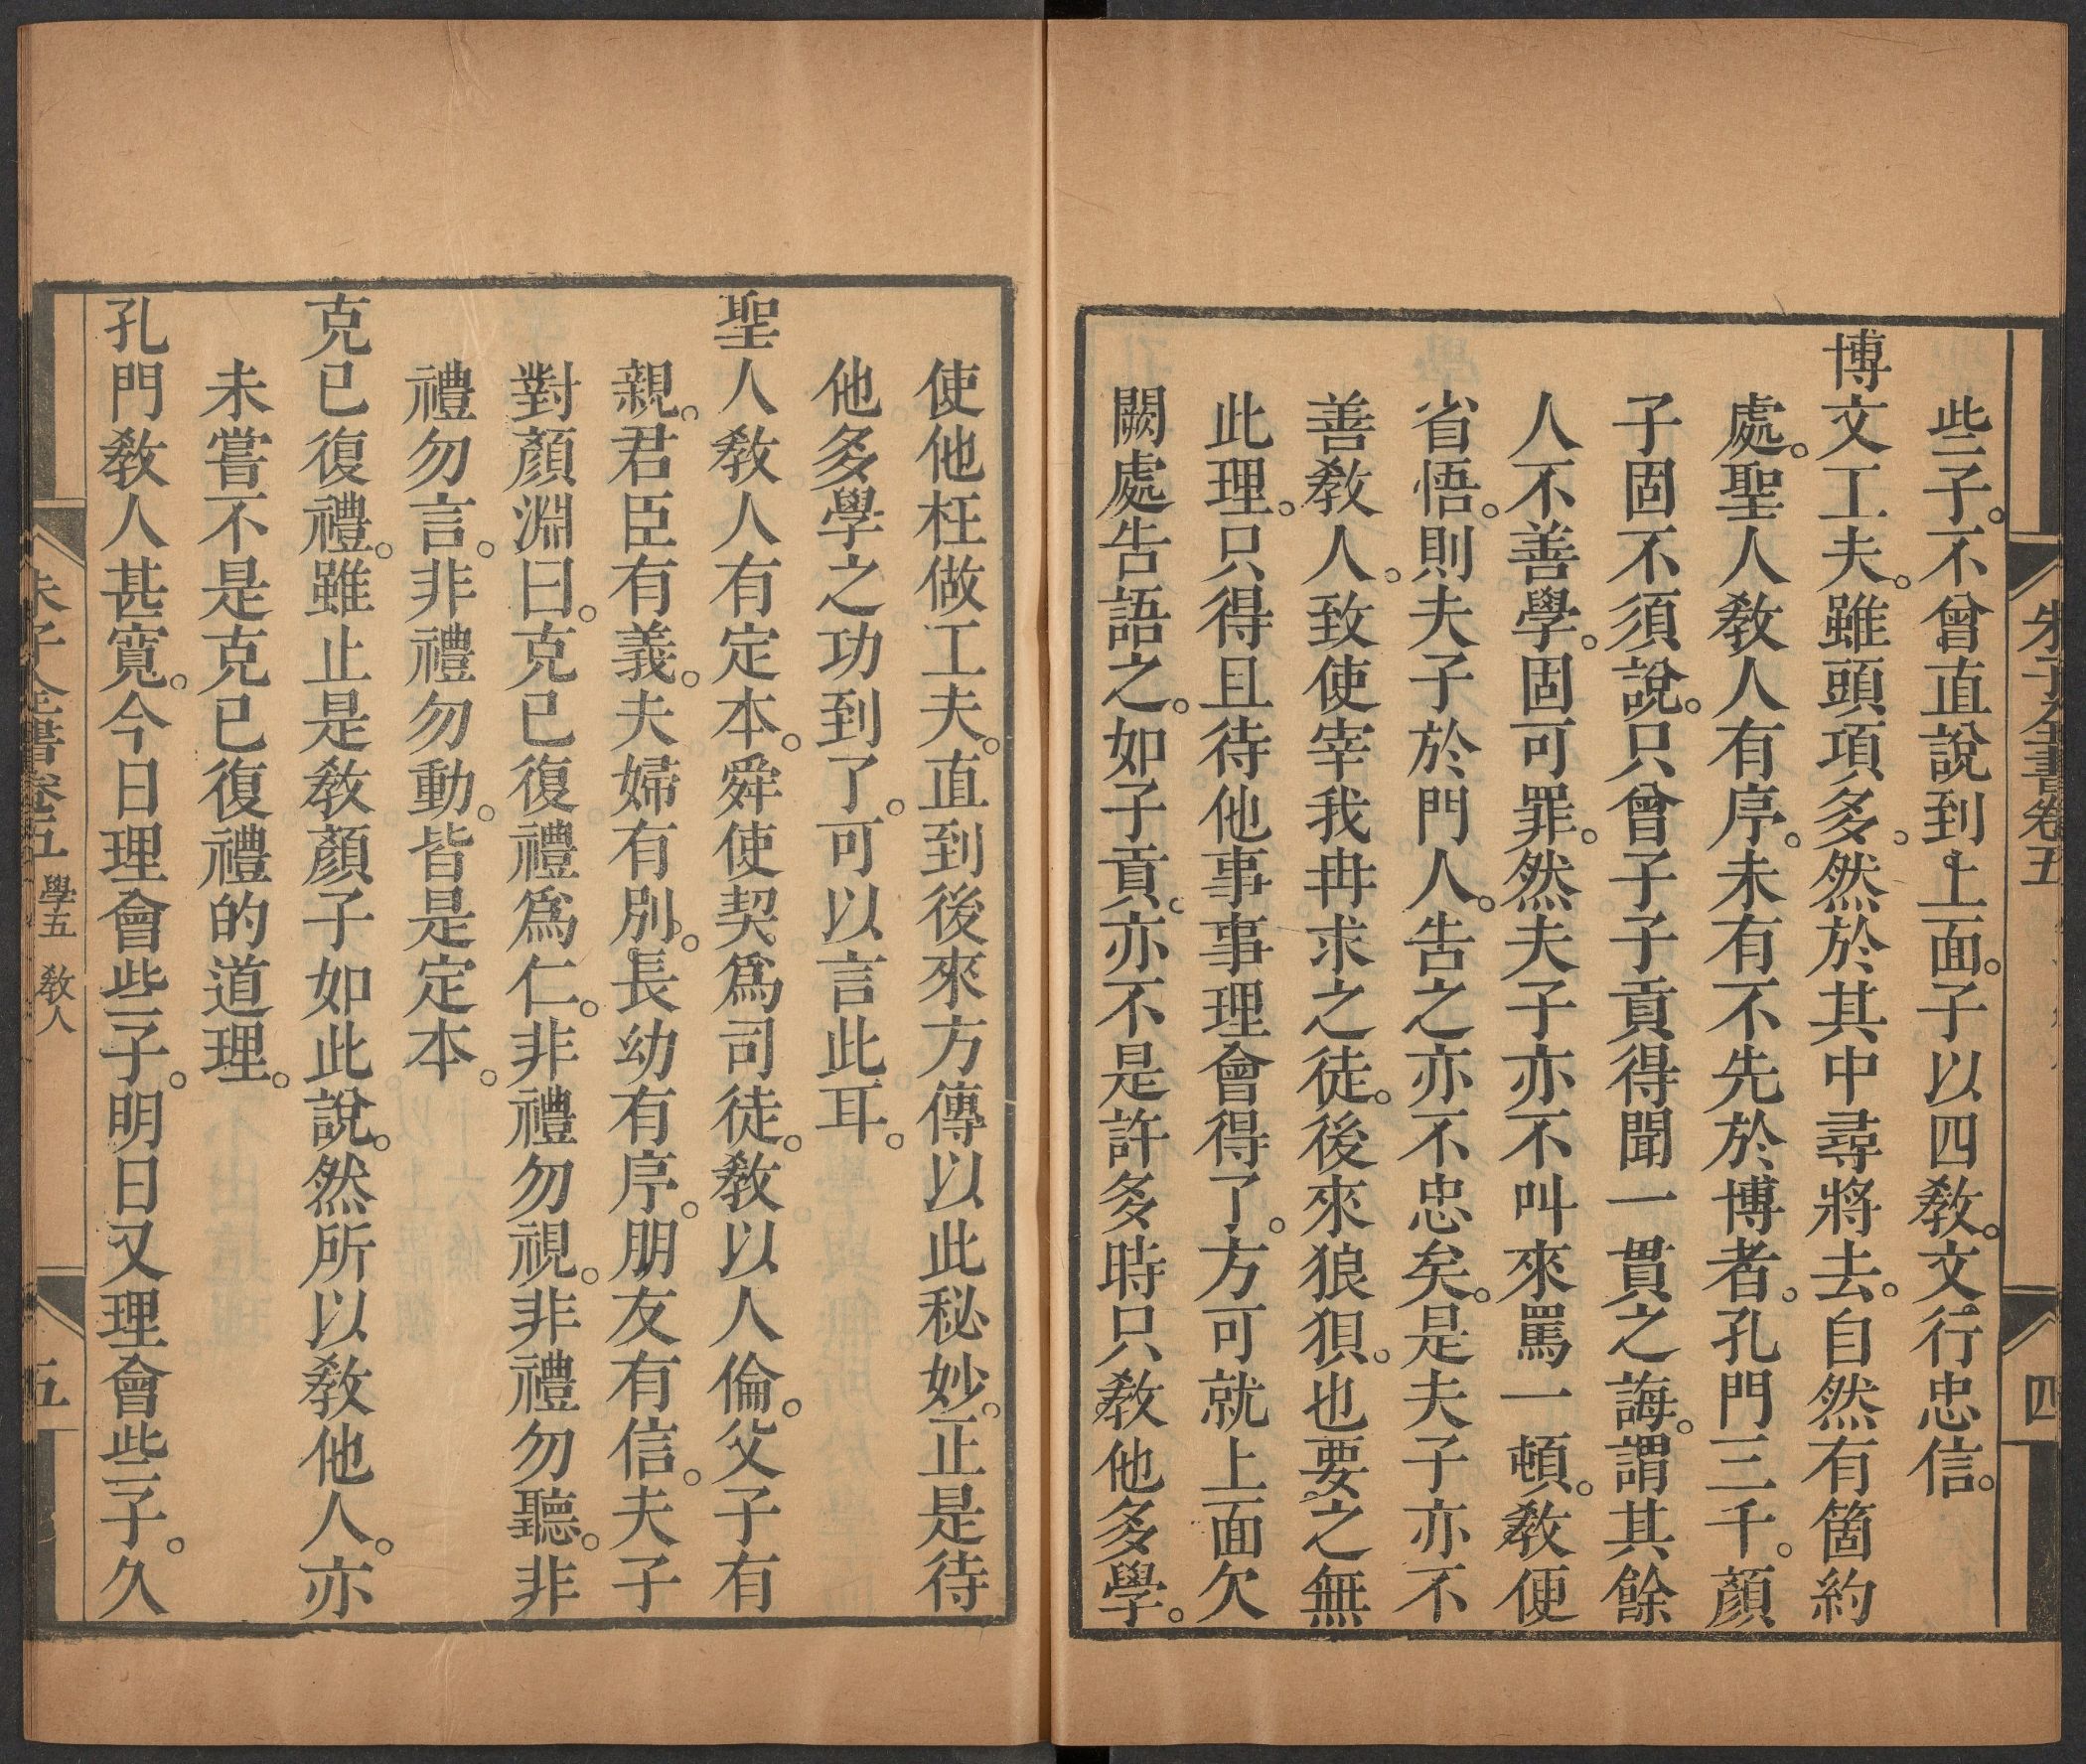 朱子全書卷五
四
些子。不曾直說到上面。子以四敎。文行忠信。
博文工夫。雖頭項多。然於其中尋將去。自然有箇約
處。聖人敎人有序。未有不先於博者。孔門三千。顏
子固不須說。只曾子子貢得聞一貫之誨。謂其餘
人不善學。固可罪。然夫子亦不叫來罵一頓。敎便
省悟。則夫子於門人。告之亦不忠矣。是夫子亦不
善敎人。致使宰我冉求之徒。後來狼狽。也要之無
此理。只得且待他事事理會得了。方可就上面欠
闕處告語之。如子貢。亦不是許多時只敎他多學。
使他枉做工夫。直到後來方傳以此秘妙。正是待
他多學之功到了。可以言此耳。
聖人敎人有定本。舜使契爲司徒。敎以人倫。父子有
親。君臣有義。夫婦有別。長幼有序。朋友有信。夫子
對顏淵曰。克已復禮爲仁。非禮勿視。非禮勿聽。非
禮勿言。非禮勿動。皆是定本。
克已復禮。雖止是敎顏子如此說。然所以敎他人。亦
未嘗不是克已復禮的道理。
孔門敎人甚寬。今日理會些子。明日又理會些子。久
朱子全書卷五 學五 敎人
五